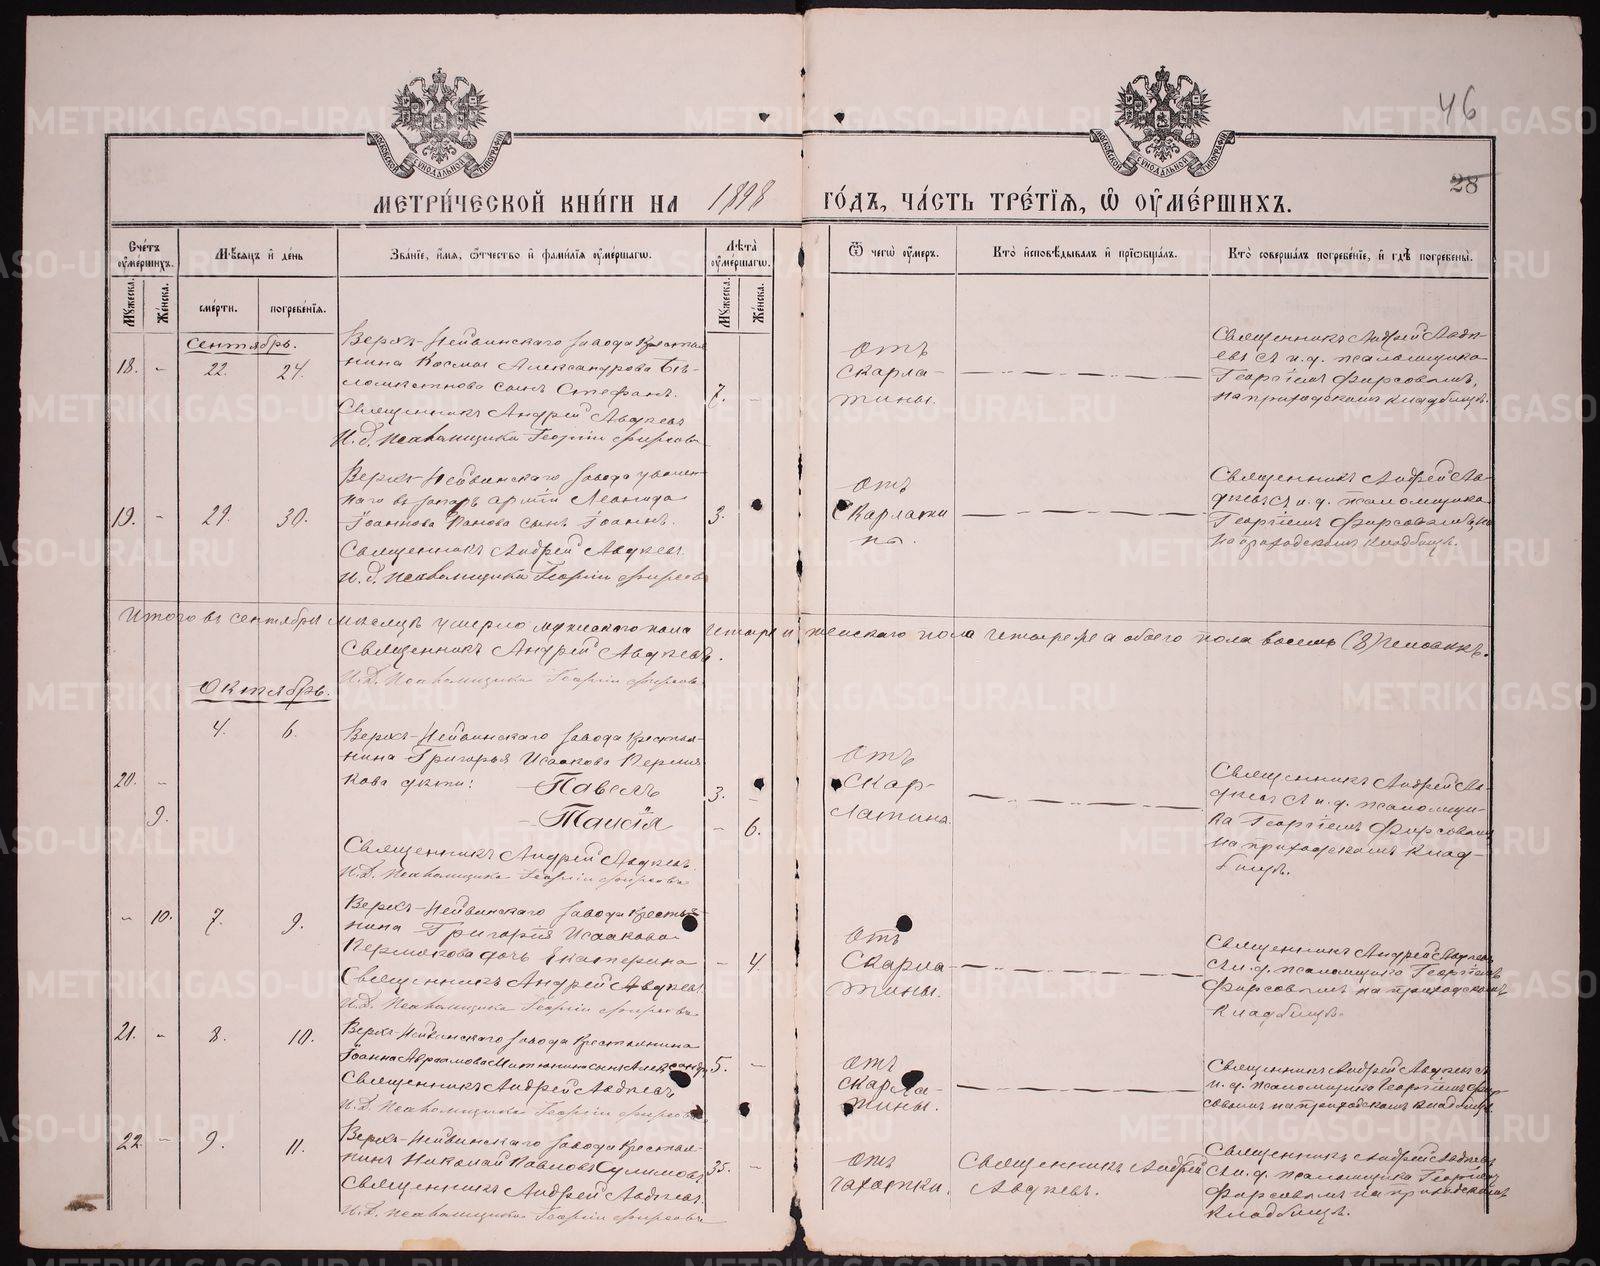 46
28
МЕТРИ́ЧЕСКОЙ КНИ́ГИ НА 1898 ГО́ДЪ, ЧА́СТЬ ТРЕ́ТІѦ, Ѡ҆ ОУ҆МЕ́РШИХЪ.
МОСКОВСКОЙ СѴНОДАЛЬНОЙ ТИПОГРАФІИ
МОСКОВСКОЙ СѴНОДАЛЬНОЙ ТИПОГРАФІИ
Сче́тъ оу҆ме́ршихъ.
Мꙋ́жеска.
Же́нска.
Мѣ́сѧцъ и҆ де́нь
сме́рти.
погребе́нїѧ.
Зва́нїе, и҆́мѧ, ѻ҆́тчество и҆ фамѝлїѧ оу҆ме́ршагѡ.
Лѣ́та оу҆ме́ршагѡ.
Мꙋ́жеска.
Же́нска.
Ѿ чегѡ̀ оу҆́меръ.
Кто̀ и҆сповѣ́дывалъ и҆ прїѡбща́лъ.
Кто̀ соверша́лъ погребе́нїе, и҆ гдѣ̀ погребены̀.
Сентябрь.
18. - 22. 24.
Верхъ-Нейвинскаго завода крестья-
нина Космы Александрова Бѣ-
сынъ Стефанъ.
Священникъ Андрей Авдѣевъ
И. д. псаломщика Георгій Фирсовъ
7. -
отъ
скарла-
тины.
Священникъ Андрей Авдѣ-
евъ съ и. д. псаломщика
Георгіемъ Фирсовымъ,
на приходскомъ кладбищѣ.
19. - 29. 30.
Верхъ-Нейвинскаго завода уволен-
наго въ запасъ арміи Леонида
Іоаннова Панова сынъ Іоаннъ.
Священникъ Андрей Авдѣевъ.
И. д. псаломщика Георгій Фирсовъ
3. -
отъ
скарлати
ны.
Священникъ Андрей Ав-
дѣевъ съ и. д. псаломщика
Георгіемъ Фирсовымъ, на
на приходскомъ кладбищѣ.
Итого въ сентябрѣ мѣсяцѣ умерло мужескаго пола четыре и женскаго пола четыре а обоего пола восемь (8) человѣкъ.
Священникъ Андрей Авдѣевъ.
И. д. псаломщика Георгій Фирсовъ
Октябрь.
4. 6.
Верхъ-Нейвинскаго завода крестья-
нина Григорья Исаакова Пермя-
кова дѣти: Павелъ
Таисія
20. -
9.
Священникъ Андрей Авдѣевъ.
И. д. псаломщика Георгій Фирсовъ
3. -
- 6.
отъ
скар-
латины.
Священникъ Андрей Ав-
дѣевъ съ и. д. псаломщи-
ка Георгіемъ Фирсовымъ
на приходскомъ клад-
бищѣ.
- 10. 7. 9.
Верхъ-Нейвинскаго завода крестья-
нина Григорія Исаакова
Пермякова дочь Екатерина
Священникъ Андрей Авдѣевъ.
И. д. псаломщика Георгій Фирсовъ
- 4.
отъ
скарла
тины.
Священникъ Андрей Авдѣевъ
съ и. д. псаломщика Георгіемъ
Фирсовымъ на приходскомъ
кладбищѣ.
21. - 8. 10.
Верхъ-Нейвинскаго завода крестьянина
Іоанна Авраамова Митюнина сынъ Александръ
Священникъ Андрей Авдѣевъ
И. д. псаломщика Георгій Фирсовъ
5. -
отъ
скарла-
тины.
Священникъ Андрей Авдѣевъ съ
и. д. псаломщика Георгіемъ Фир-
совымъ на приходскомъ кладбищѣ.
22. - 9. 11.
Верхъ-Нейвинскаго завода крестья-
нинъ Николай Павловъ Сулимовъ
Священникъ Андрей Авдѣевъ.
И. д. псаломщика Георгій Фирсовъ
35. -
отъ
чахотки.
Священникъ Андрей
Авдѣевъ.
Священникъ Андрей Авдѣевъ
съ и. д. псаломщика Георгіемъ
Фирсовымъ на приходскомъ
кладбищѣ.
METRIKI.GASO-URAL.RU